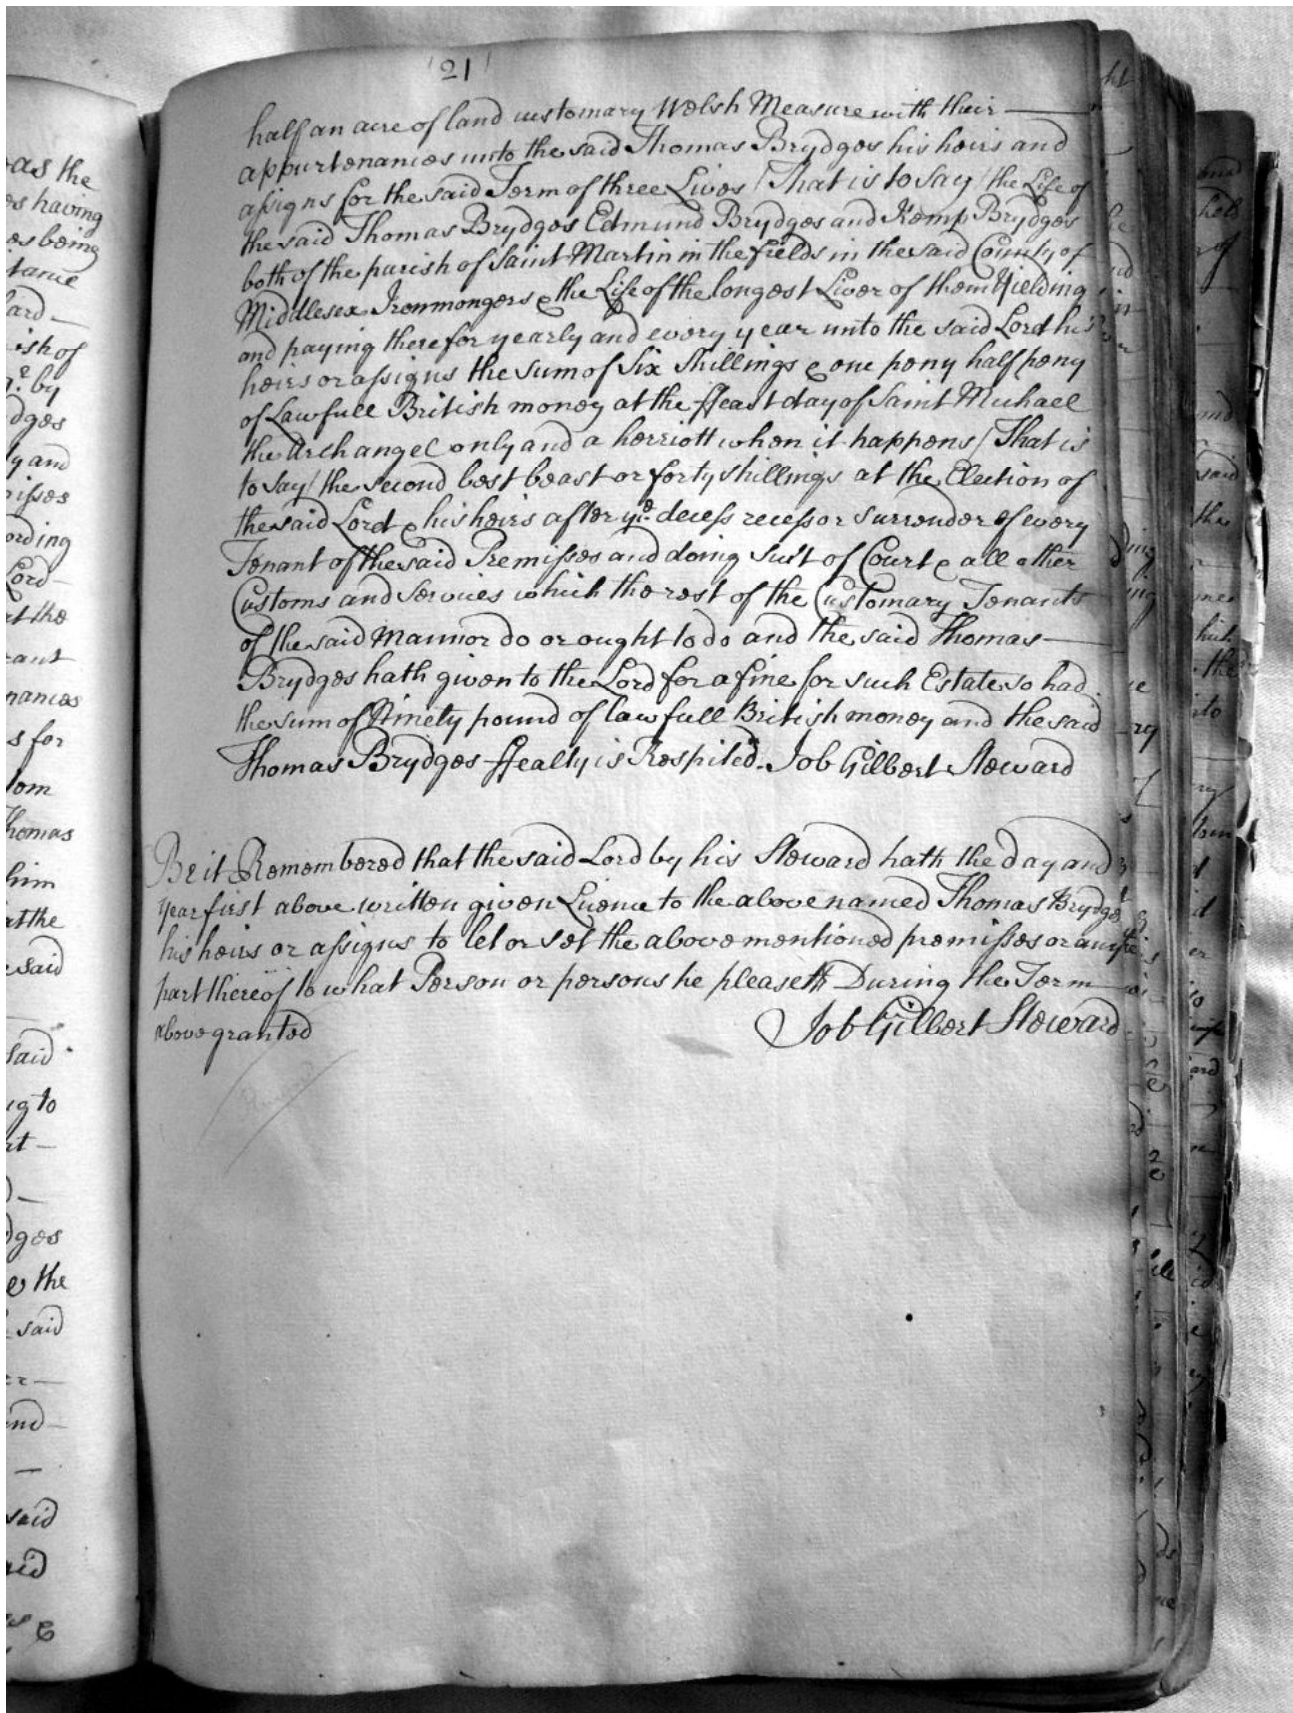 (21)
half an acre of land customary Welsh Measure with their
appurtenances unto the said Thomas Brydges his heirs and
assigns for the said Term of three Lives (That is to say) the Life of
the said Thomas Brydges Edmund Brydges and Kemp Brydges
both of the parish of Saint Martin in the fields in the said County of
Middlesex Ironmongers & the Life of the longest Liver of them Yielding
and paying therefor yearly and every year unto the said Lord his
heirs or assigns the sum of Six shillings & one peny half peny
of Lawfull British money at the ffeast day of Saint Michael
the Archangel only and a herriott when it happens (That is
to say) the second best beast or forty shillings at the Election of
the said Lord & his heirs after ye. decess recess or surrender of every
Tenant of the said Premisses and doing suit of Court & all other
Customs and services which the rest of the Customary Tenants
of the said Mannor do or ought to do and the said Thomas
Brydges hath given to the Lord for a fine for such Estate so had
the sum of Ninety pound of lawfull British money and the said
Thomas Brydges ffealty is Respited. Job Gilbert Steward
Be it Remembered that the said Lord by his Steward hath the day and
year first above written given Licence to the above named Thomas Brydges
his heirs or assigns to let or set the above mentioned premisses or any
part thereof to what Person or persons he pleaseth During the Term
above granted
Job Gilbert Steward
as the
es having
es being
itance
ard
ish of
by
dges
y and
isses
ording
Lord
at the
rant
nances
s for
dom
Thomas
him
at the
said
said
ng to
at
dges
the
said
and
said
aid